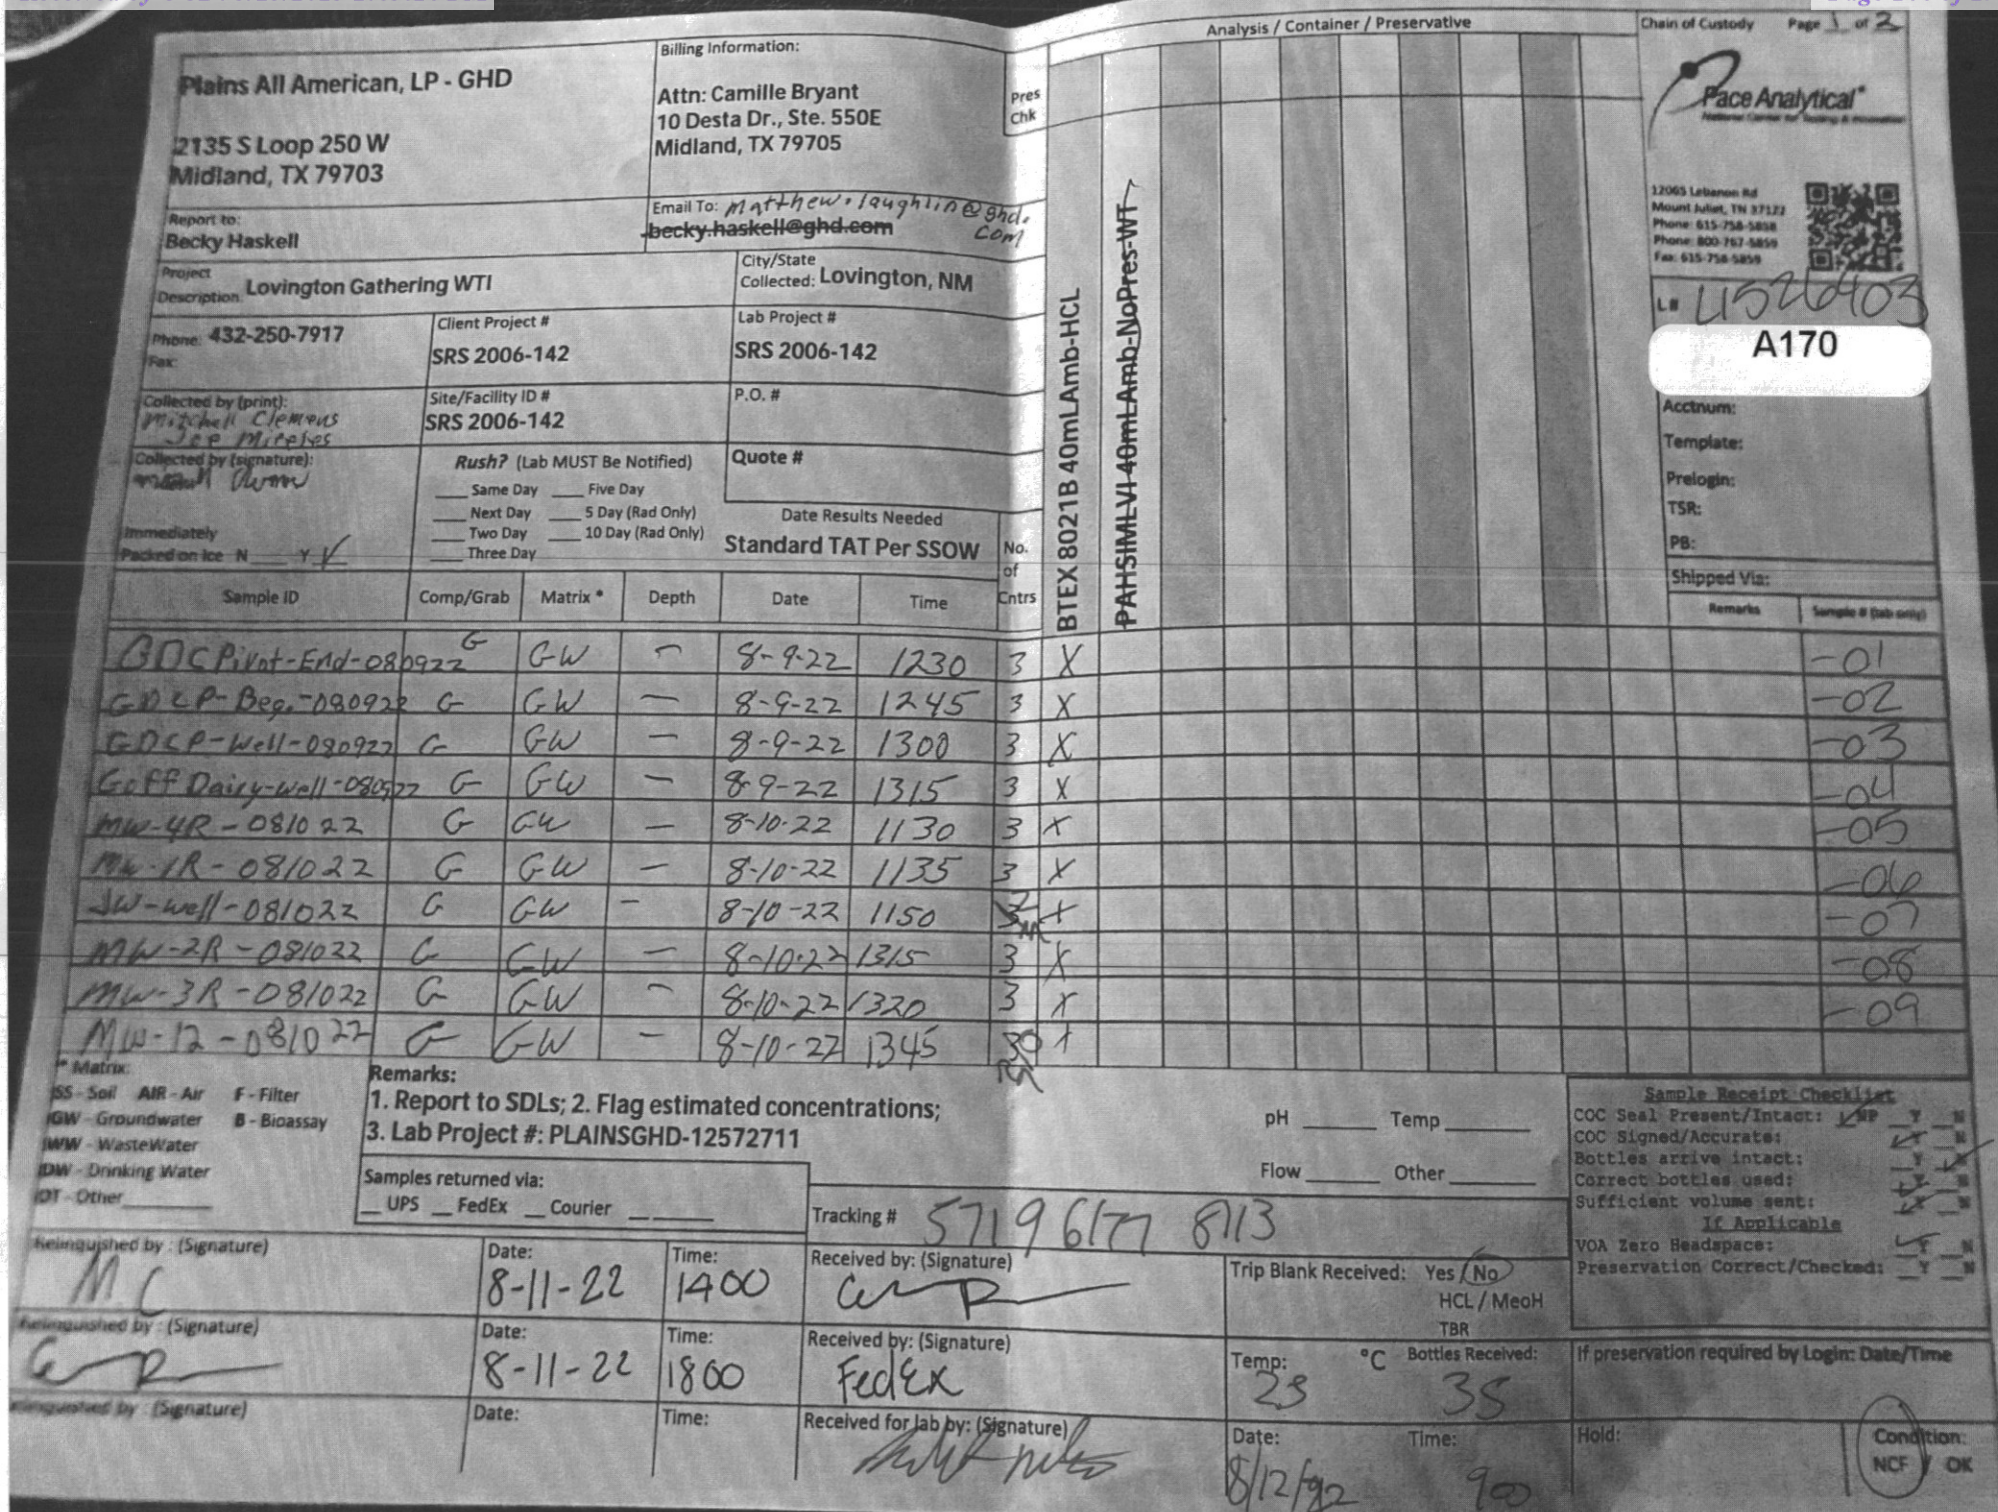 Analysis / Container / Preservative
Chain of Custody Page 1 of 2
Plains All American, LP - GHD
2135 S Loop 250 W
Midland, TX 79703
Billing Information:
Attn: Camille Bryant
10 Desta Dr., Ste. 550E
Midland, TX 79705
Pres
Chk
Pace Analytical®
National Center for Testing & Innovation
12065 Lebanon Rd
Mount Juliet, TN 37122
Phone: 615-758-5858
Phone: 800-767-5859
Fax: 615-758-5859
Report to:
Becky Haskell
Email To: matthew.laughlin@ghd.
com
becky.haskell@ghd.com
Project
Description: Lovington Gathering WTI
City/State
Collected: Lovington, NM
Phone: 432-250-7917
Fax:
Client Project #
SRS 2006-142
Lab Project #
SRS 2006-142
L# L1526403
A170
Collected by (print):
Mitchell Clemens
Joe Mireles
Site/Facility ID #
SRS 2006-142
P.O. #
Acctnum:
Template:
Prelogin:
TSR:
PB:
Shipped Via:
Collected by (signature):
Rush? (Lab MUST Be Notified)
Same Day Five Day
Next Day 5 Day (Rad Only)
Two Day 10 Day (Rad Only)
Three Day
Quote #
Date Results Needed
Standard TAT Per SSOW
Immediately
Packed on Ice N Y ✓
No.
of
Cntrs
BTEX 8021B 40mLAmb-HCL
PAHSIMLVI 40mLAmb-NoPres-WT
Sample ID Comp/Grab Matrix * Depth Date Time Remarks Sample # (lab only)
GDCPivot-End-080922 G GW - 8-9-22 1230 3 X -01
GDCP-Beg.-080922 G GW - 8-9-22 1245 3 X -02
GDCP-Well-080922 G GW - 8-9-22 1300 3 X -03
Goff Dairy-well-080922 G GW - 8-9-22 1315 3 X -04
MW-4R-081022 G GW - 8-10-22 1130 3 X -05
MW-1R-081022 G GW - 8-10-22 1135 3 X -06
JW-well-081022 G GW - 8-10-22 1150 X -07
MW-2R-081022 G GW - 8-10-22 1315 3 X -08
MW-3R-081022 G GW - 8-10-22 1320 3 X -09
MW-12-081022 G GW - 8-10-22 1345 X
* Matrix:
SS - Soil AIR - Air F - Filter
GW - Groundwater B - Bioassay
WW - WasteWater
DW - Drinking Water
OT - Other
Remarks:
1. Report to SDLs; 2. Flag estimated concentrations;
3. Lab Project #: PLAINSGHD-12572711
pH Temp
Flow Other
Samples returned via:
UPS FedEx Courier
Tracking # 5719 6177 8713
Sample Receipt Checklist
COC Seal Present/Intact: NP Y N
COC Signed/Accurate: Y N
Bottles arrive intact: Y N
Correct bottles used: Y N
Sufficient volume sent: Y N
If Applicable
VOA Zero Headspace: Y N
Preservation Correct/Checked: Y N
Relinquished by : (Signature)
MC
Date:
8-11-22
Time:
1400
Received by: (Signature)
Trip Blank Received: Yes / No
HCL / MeoH
TBR
Relinquished by : (Signature)
Date:
8-11-22
Time:
1800
Received by: (Signature)
FedEx
Temp: °C Bottles Received:
35
If preservation required by Login: Date/Time
Relinquished by : (Signature)
Date:
Time:
Received for lab by: (Signature)
Date:
Time:
900
Hold:
Condition:
NCF / OK